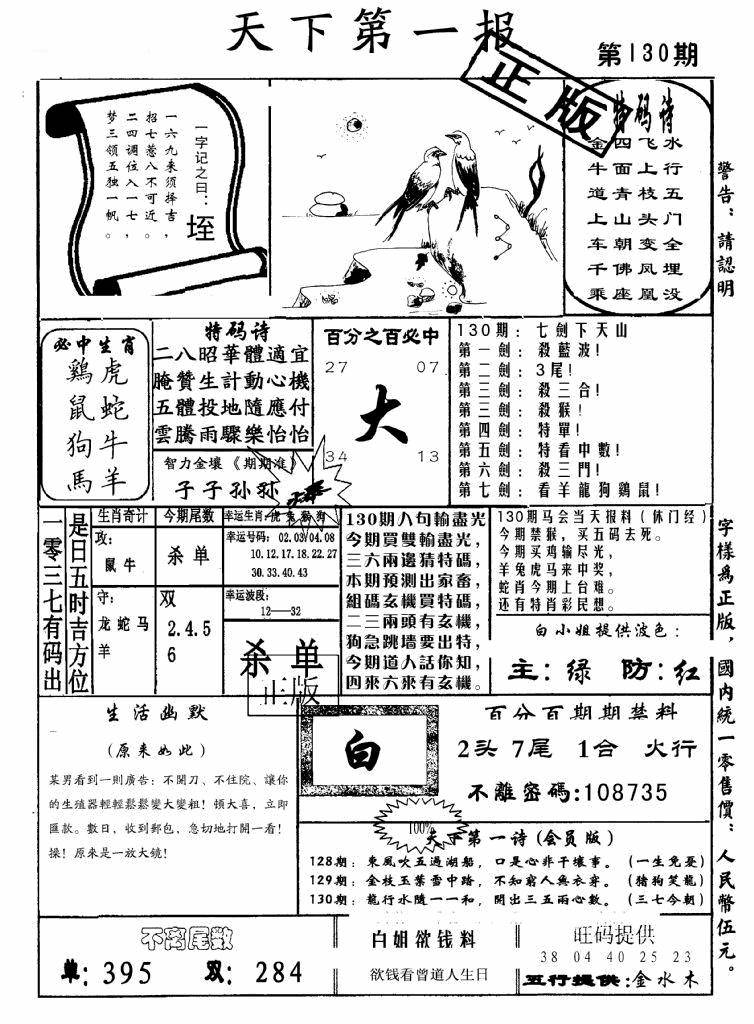 天下第一报
第130期
正版
一字记之曰：
垤
一六九来须择吉，
招七惹八不可近。
二四调位入一七，
梦三领五独一帆。
特码诗
金四飞水
牛面上行
道青枝五
上山头门
车朝变全
千佛凤埋
乘座凰没
警告：請認明
字樣爲正版，國内統一零售價：人民幣伍元。
必中生肖
鷄虎
鼠蛇
狗牛
馬羊
特码诗
二八昭華體適宜
腌贊生計動心機
五體投地隨應付
雲騰雨驟樂怡怡
智力金壤《期期准》
子子孙孙
百分之百必中
27 07
大
34 13
130期：七劍下天山
第一劍：殺藍波！
第二劍：3尾！
第三劍：殺三合！
第三劍：殺猴！
第四劍：特單！
第五劍：特看中數！
第六劍：殺三門！
第七劍：看羊龍狗鷄鼠！
是日五时吉方位
一零三七有码出
生肖奇计
攻：
鼠牛
守：
龙蛇马
羊
今期尾数
杀单
双
2.4.5
6
幸运生肖：虎兔猴狗
幸运号码：02.03/04.08
10.12.17.18.22.27
30.33.40.43
幸运波段：
12——32
杀单
正版
130期八句輸盡光
今期買雙輸盡光，
三六兩邊猜特碼，
本期預測出家畜，
組碼玄機買特碼，
二三兩頭有玄機，
狗急跳墙要出特，
今期道人話你知，
四來六來有玄機。
130期马会当天报料（休门经）
今期禁猴，买五码去死。
今期买鸡输尽光，
羊兔虎马来中奖，
蛇肖今期上台难。
还有特肖彩民想。
白小姐提供波色：
主：绿 防：红
生活幽默
（原来如此）
某男看到一則廣告：不開刀、不住院、讓你
的生殖器輕輕鬆鬆變大變粗！頓大喜，立即
匯款。數日，收到郵包，急切地打開一看！
操！原來是一放大鏡！
白
百分百期期禁料
2头 7尾 1合 火行
不離密碼:108735
100%
天下第一诗(会员版)
128期：東風吹五過湖船，口是心非干壞事。（一生免憂）
129期：金枝玉葉雪中路，不知窮人無衣穿。（猪狗笑龍）
130期：龍行水隨一一和，開出三五兩心數。（三七今朝）
不离尾数
单：395 双：284
白姐欲钱料
欲钱看曾道人生日
旺码提供
38 04 40 25 23
五行提供：金水木